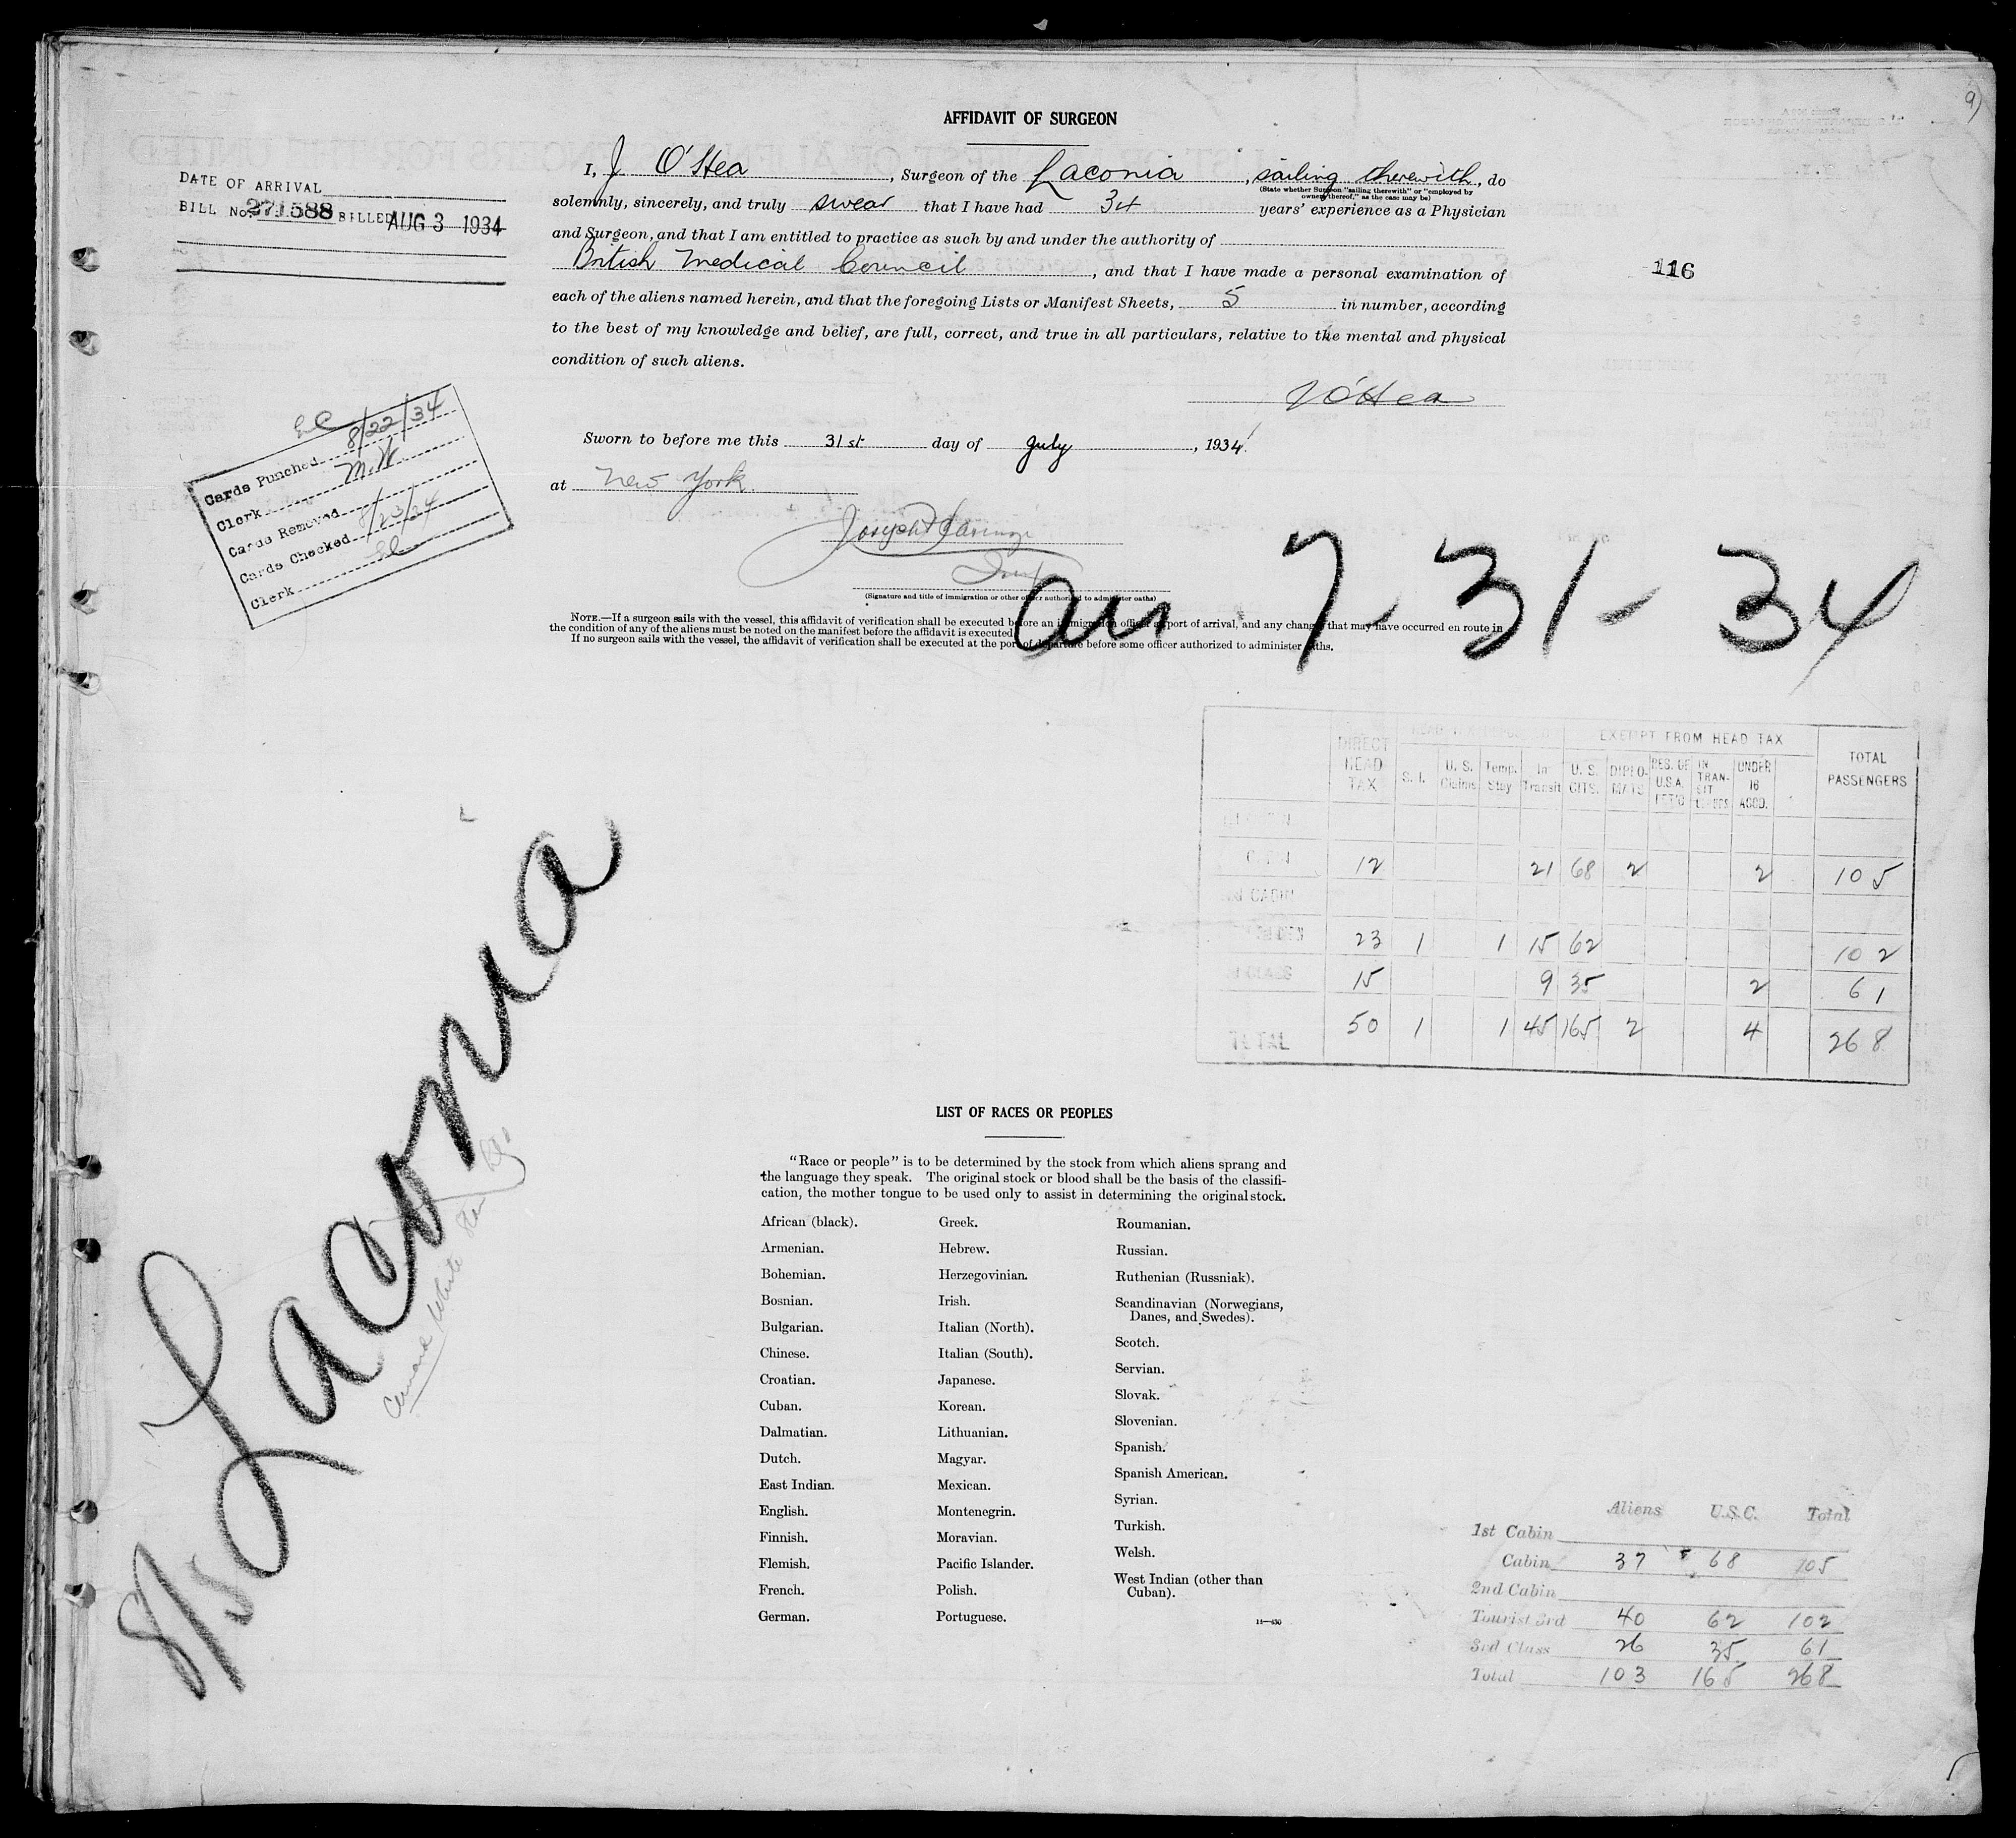 AFFIDAVIT OF SURGEON
I, J O'Hea, Surgeon of the Laconia, sailing therewith, do
(State whether Surgeon "sailing therewith" or "employed by
owners thereof," as the case may be)
solemnly, sincerely, and truly swear that I have had 34 years' experience as a Physician
and Surgeon, and that I am entitled to practice as such by and under the authority of
British Medical Council, and that I have made a personal examination of
each of the aliens named herein, and that the foregoing Lists or Manifest Sheets, 5 in number, according
to the best of my knowledge and belief, are full, correct, and true in all particulars, relative to the mental and physical
condition of such aliens.
J O'Hea
Sworn to before me this 31st day of July, 1934
at New York.
(Signature and title of immigration or other officer authorized to administer oaths)
NOTE.—If a surgeon sails with the vessel, this affidavit of verification shall be executed before an immigration officer at port of arrival, and any change that may have occurred en route in
the condition of any of the aliens must be noted on the manifest before the affidavit is executed.
If no surgeon sails with the vessel, the affidavit of verification shall be executed at the port of departure before some officer authorized to administer oaths.
DATE OF ARRIVAL
BILL No. 271588 BILLED AUG 3 1934
116
9
Cards Punched 8/22/34
Clerk M.W.
Cards Removed
Cards Checked 8/23/34
Clerk
arr 7-31-34
DIRECT HEAD TAX S. I. U. S. Claims Temp. Stay In Transit EXEMPT FROM HEAD TAX U. S. CITS. DIPLO-MATS RES. OF U.S.A. RET'G IN TRAN-SIT UNDER 16 ACCD. TOTAL PASSENGERS
12 21 68 2 2 105
2nd CABIN
23 1 1 15 62 102
3d CLASS 15 9 35 2 61
TOTAL 50 1 1 45 165 2 4 268
Laconia
Cunard White Star
8/5
LIST OF RACES OR PEOPLES
"Race or people" is to be determined by the stock from which aliens sprang and
the language they speak. The original stock or blood shall be the basis of the classifi-
cation, the mother tongue to be used only to assist in determining the original stock.
African (black).
Armenian.
Bohemian.
Bosnian.
Bulgarian.
Chinese.
Croatian.
Cuban.
Dalmatian.
Dutch.
East Indian.
English.
Finnish.
Flemish.
French.
German.
Greek.
Hebrew.
Herzegovinian.
Irish.
Italian (North).
Italian (South).
Japanese.
Korean.
Lithuanian.
Magyar.
Mexican.
Montenegrin.
Moravian.
Pacific Islander.
Polish.
Portuguese.
Roumanian.
Russian.
Ruthenian (Russniak).
Scandinavian (Norwegians,
Danes, and Swedes).
Scotch.
Servian.
Slovak.
Slovenian.
Spanish.
Spanish American.
Syrian.
Turkish.
Welsh.
West Indian (other than
Cuban).
Aliens U.S.C. Total
1st Cabin
Cabin 37 68 105
2nd Cabin
Tourist 3rd 40 62 102
3rd Class 26 35 61
Total 103 165 268